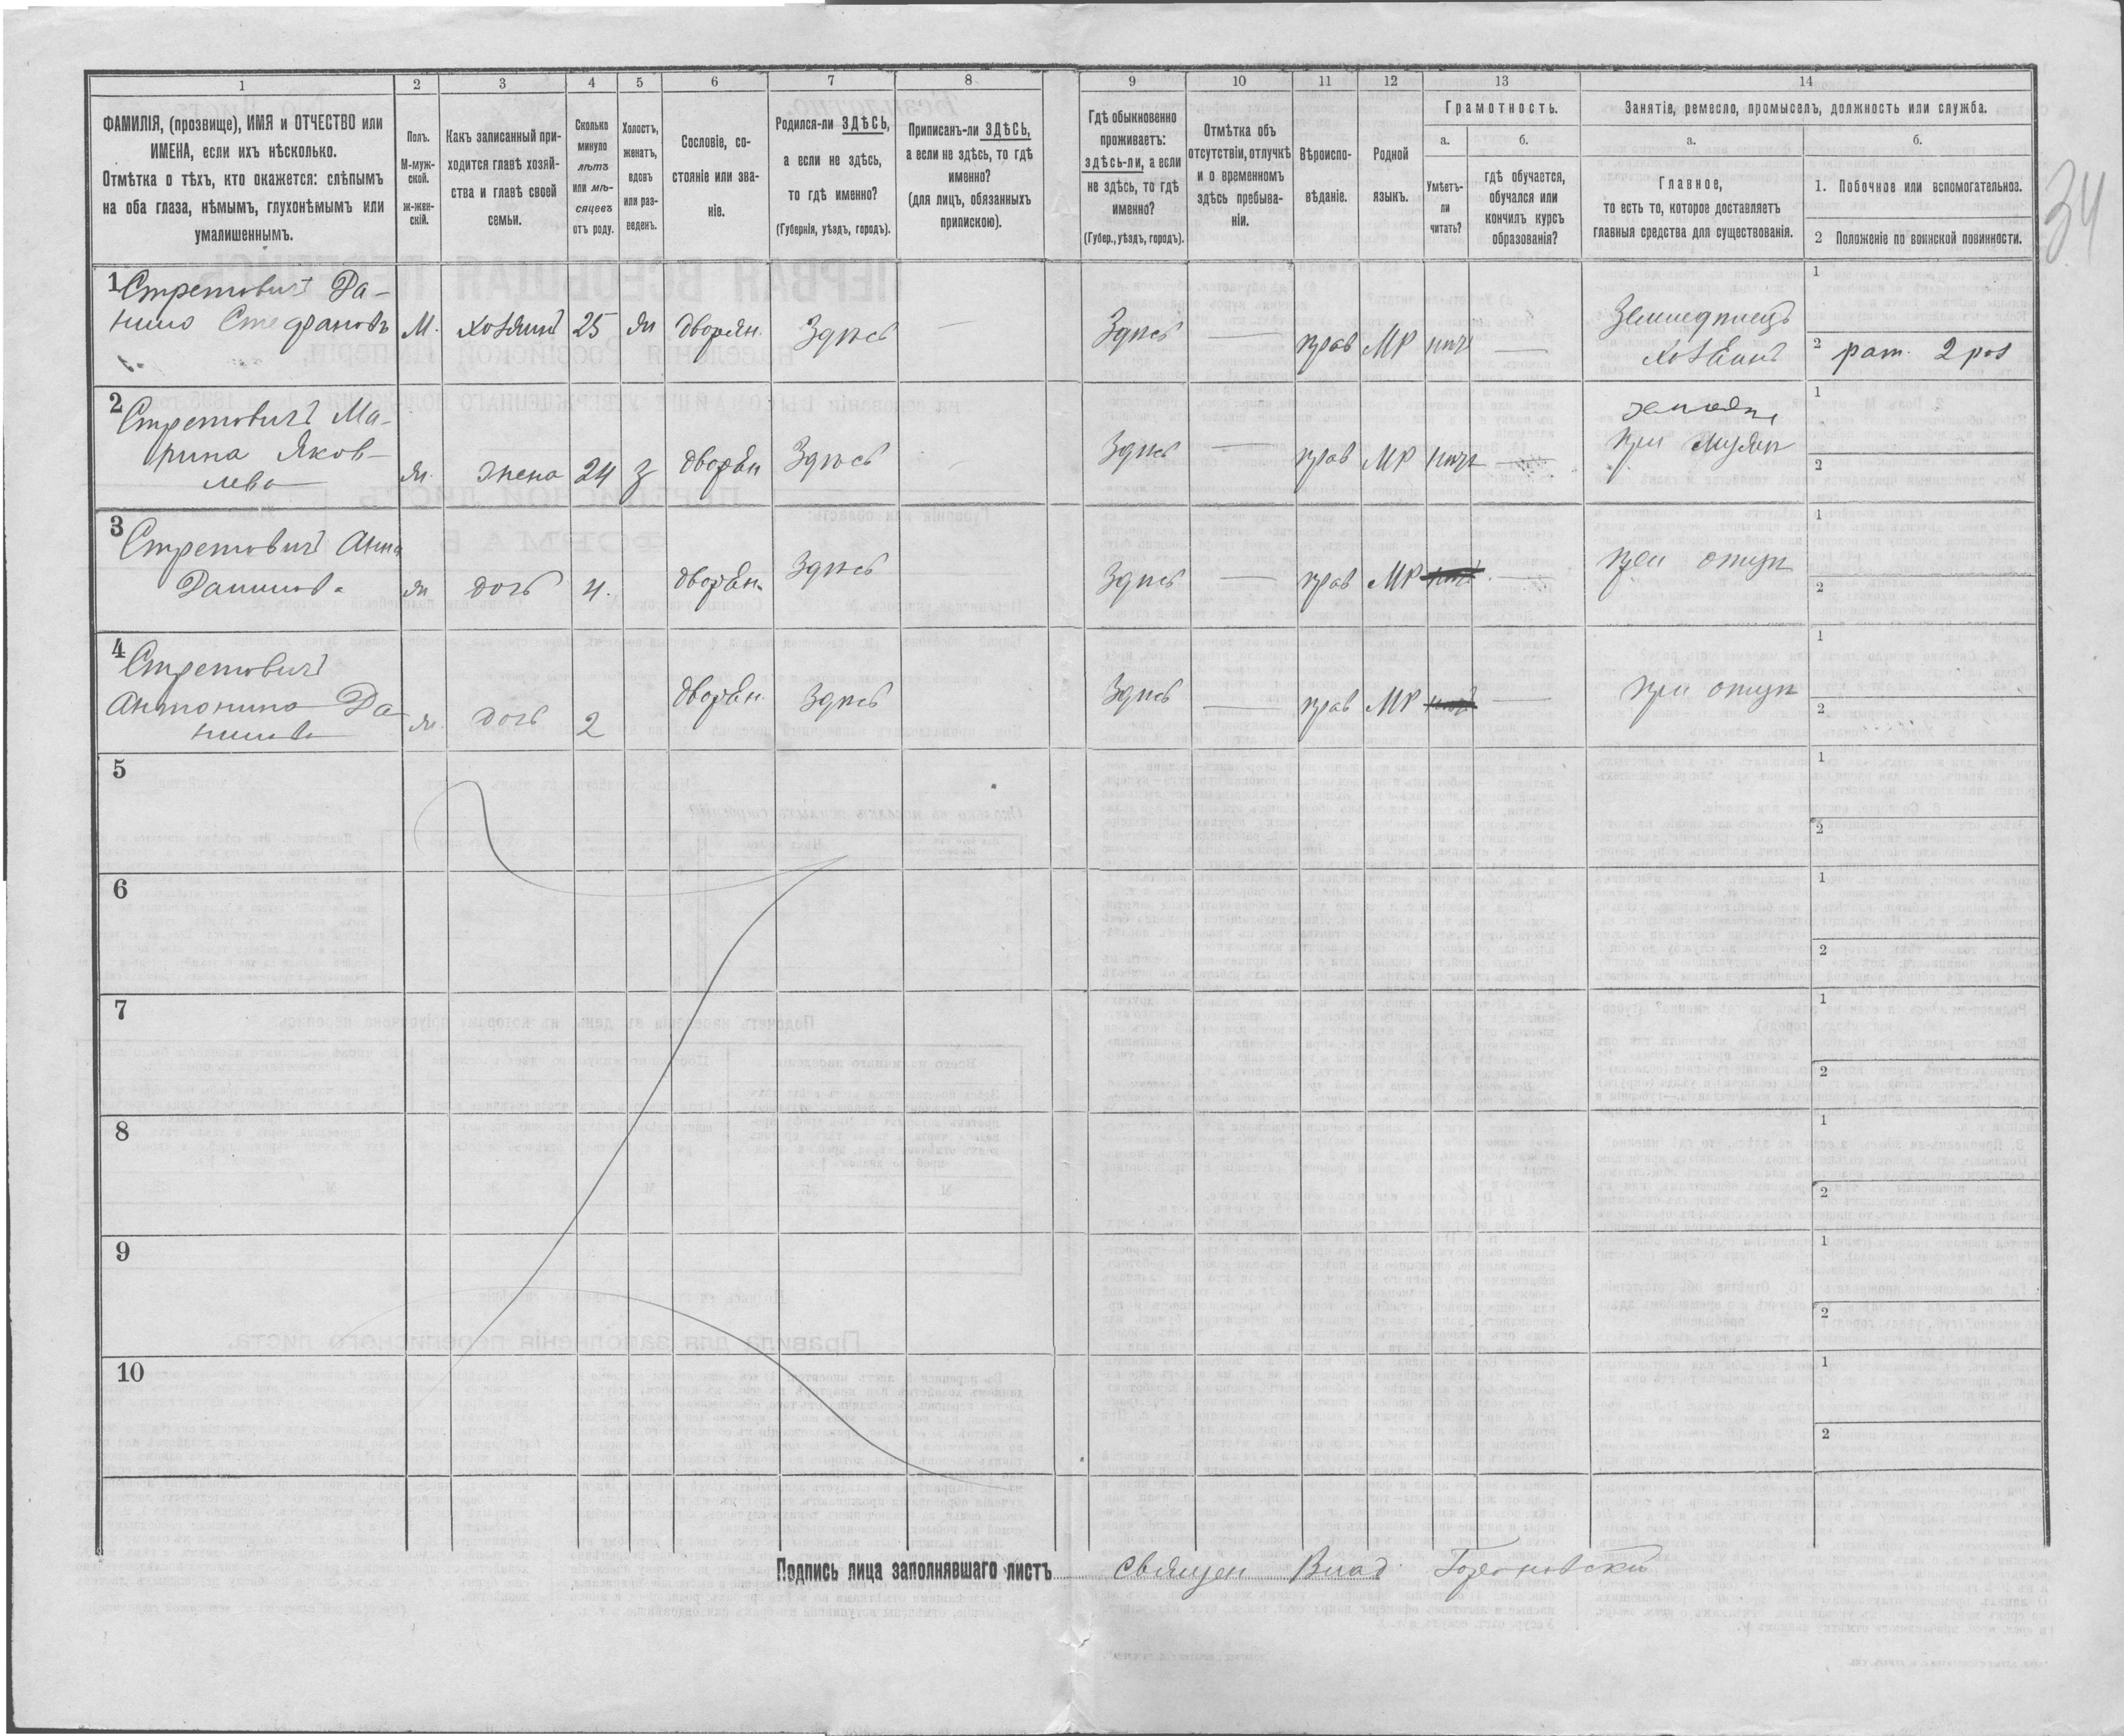 34
1 2 3 4 5 6 7 8 9 10 11 12 13 14
ФАМИЛІЯ, (прозвище), ИМЯ и ОТЧЕСТВО или
ИМЕНА, если ихъ нѣсколько.
Отмѣтка о тѣхъ, кто окажется: слѣпымъ
на оба глаза, нѣмымъ, глухонѣмымъ или
умалишеннымъ.
Полъ.
М-муж-
ской.
ж-жен-
скій.
Какъ записанный при-
ходится главѣ хозяй-
ства и главѣ своей
семьи.
Сколько
минуло
лѣтъ
или мѣ-
сяцевъ
отъ роду.
Холостъ,
женатъ,
вдовъ
или раз-
веденъ.
Сословіе, со-
стояніе или зва-
ніе.
Родился-ли ЗДѢСЬ,
а если не здѣсь,
то гдѣ именно?
(Губернія, уѣздъ, городъ).
Приписанъ-ли ЗДѢСЬ,
а если не здѣсь, то гдѣ
именно?
(для лицъ, обязанныхъ
припискою).
Гдѣ обыкновенно
проживаетъ:
здѣсь-ли, а если
не здѣсь, то гдѣ
именно?
(Губер., уѣздъ, городъ).
Отмѣтка объ
отсутствіи, отлучкѣ
и о временномъ
здѣсь пребыва-
ніи.
Вѣроиспо-
вѣданіе.
Родной
языкъ.
Грамотность.
а.
Умѣетъ-
ли
читать?
б.
гдѣ обучается,
обучался или
кончилъ курсъ
образованія?
Занятіе, ремесло, промыселъ, должность или служба.
а.
Главное,
то есть то, которое доставляетъ
главныя средства для существованія.
б.
1. Побочное или вспомогательноэ.
2 Положеніе по воинской повинности.
1 Стретовичъ Да-
нило Стефановъ М. хозяинъ 25 ж дворян. Здѣсь — Здѣсь — прав МР нѣтъ — Земледѣлецъ
хозяинъ
1
2 рат. 2 раз
2 Стретовичъ Ма-
рина Яков-
лева ж. жена 24 з дворян Здѣсь Здѣсь — прав МР нѣтъ —
при мужѣ
1
2
3 Стретовичъ Анна
Данилова ж дочь 4. дворян. Здѣсь Здѣсь — прав МР нѣтъ — при отцѣ
1
2
4 Стретовичъ
Антонина Да
нилова ж. дочь 2 дворян. Здѣсь Здѣсь — прав МР нѣтъ — при отцѣ
1
2
5
1
2
6
1
2
7
1
2
8
1
2
9
1
2
10
1
2
Подпись лица заполнявшаго листъ Священ Влад